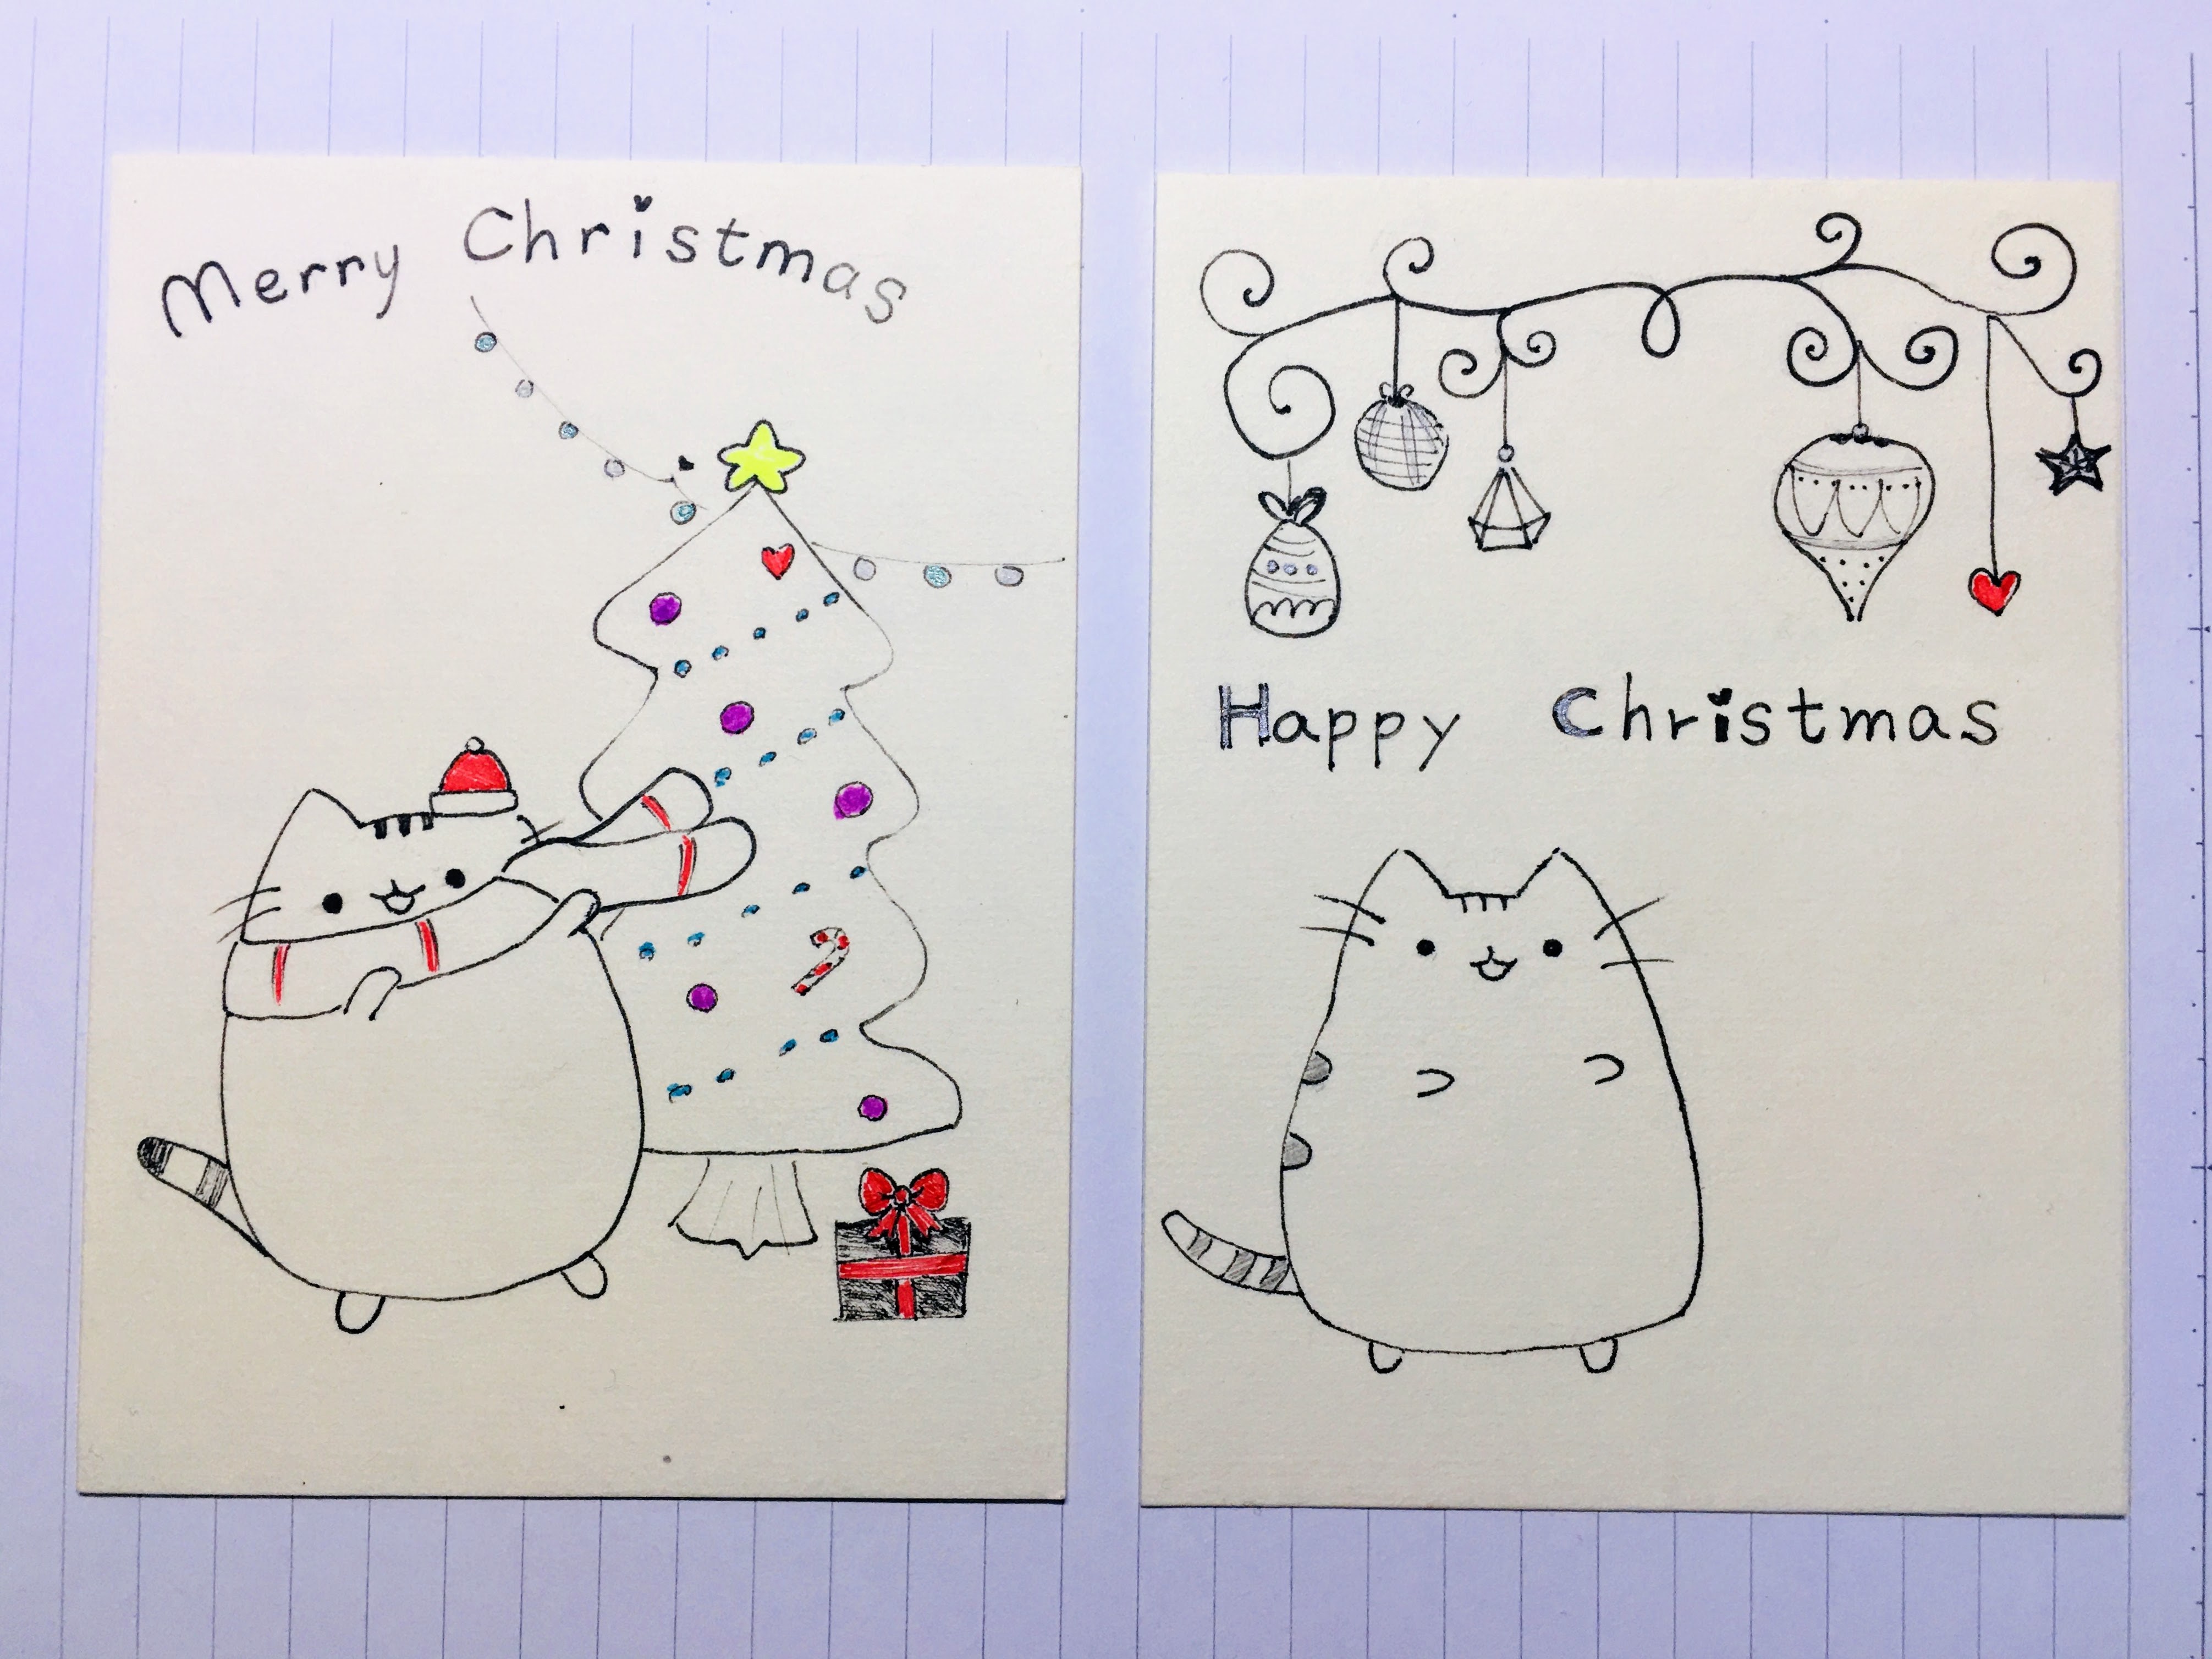 Merry Christmas
Happy Christmas